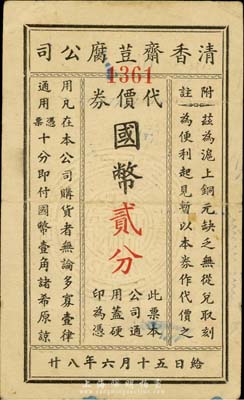 清香齋荳腐公司
1361
代價券
附註
茲為滬上銅元缺乏無從兌取刻
為便利起見暫以本券作代價之
國幣貳分
此票本
公司通
用蓋硬
印為憑
用凡在本公司購貨者無論多寡壹律
通用憑票十分即付國幣壹角諸希原諒
廿八年六月十五日給